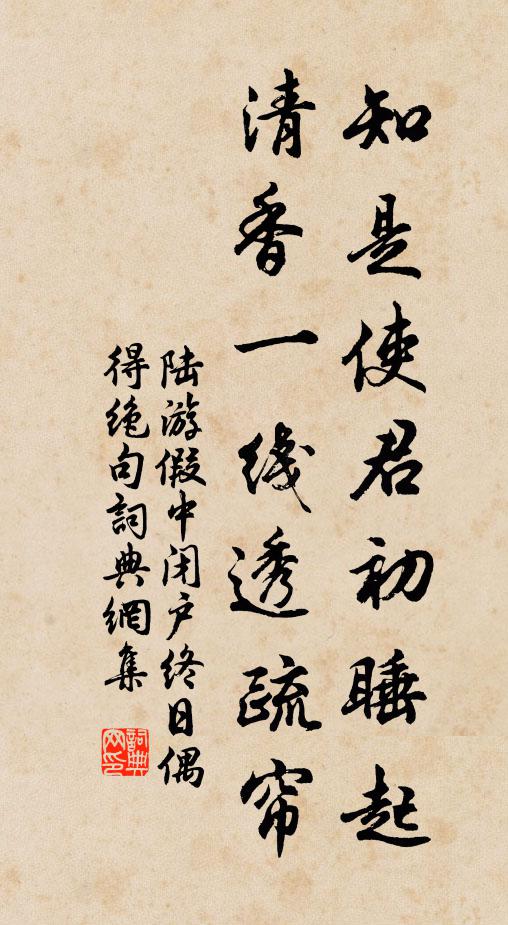 知是使君初睡起
清香一线透疏帘
陆游假中闭户终日偶
得绝句詞典網集
詞典
网印